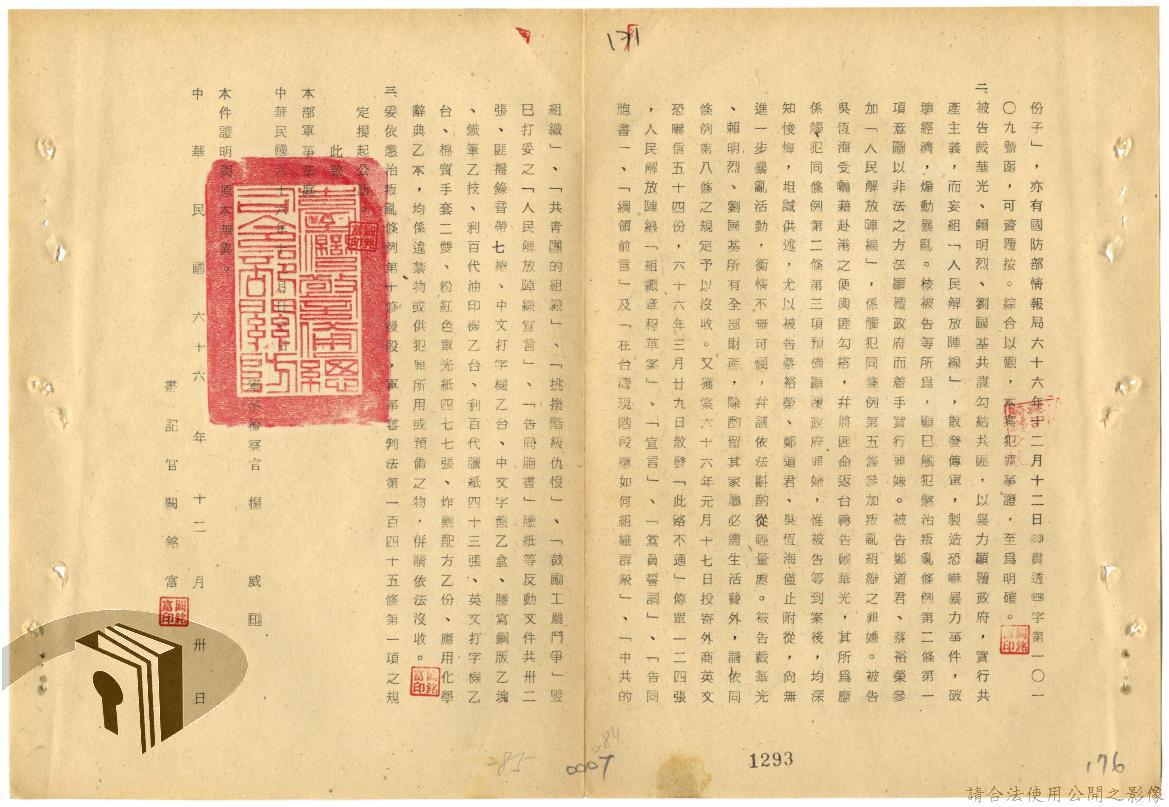 171
份子」，亦有國防部情報局六十六年十二月十二日㈣貫透四字第一〇一
〇九號函，可資覆按。綜合以觀，本案犯罪事證，至爲明確。
二、被告戴華光、賴明烈、劉國基共謀勾結共匪，以暴力顛覆政府，實行共
產主義，而妄組「人民解放陣線」，散發傳單，製造恐嚇暴力事件，破
壞經濟，煽動暴亂。核被告等所爲，顯已觸犯懲治叛亂條例第二條第一
項意圖以非法之方法顛覆政府而着手實行罪嫌。被告鄭道君、蔡裕榮參
加「人民解放陣線」，係觸犯同條例第五條參加叛亂組織之罪嫌。被告
吳恆海受囑藉赴港之便與匪勾搭，幷將匪命返台轉告戴華光，其所爲應
係觸犯同條例第二條第三項預備顛覆政府罪嫌，惟被告等到案後，均深
知悛悔，坦誠供述，尤以被告蔡裕榮、鄭道君、吳恆海僅止附從，尚無
進一步暴亂活動，衡情不無可憫，幷請依法斟酌從輕量處。被告戴華光
、賴明烈、劉國基所有全部財產，除酌留其家屬必需生活費外，請依同
條例第八條之規定予以沒收。又獲案六十六年元月十七日投寄外商英文
恐嚇信五十四份，六十六年三月廿九日散發「此路不通」傳單一二四張
，人民解放陣線「組織章程草案」、「宣言」、「黨員誓詞」、「告同
胞書」、「綱領前言」及「在台灣現階段應如何組織群衆」、「中共的
組織」、「共靑團的組織」、「挑撥階級仇恨」、「鼓勵工農鬥爭」暨
已打妥之「人民解放陣線宣言」、「告同胞書」臘紙等反動文件共卅二
張、匪播錄音帶七捲、中文打字機乙台、中文字盤乙盒、謄寫鋼版乙塊
、鐵筆乙枝、利百代油印機乙台、利百代臘紙四十三張、英文打字機乙
台、棉質手套二雙、粉紅色電光紙四七七張、炸藥配方乙份、應用化學
辭典乙本，均係違禁物或供犯罪所用或預備之物，併請依法沒收。
三、爰依懲治叛亂條例第十條後段，軍事審判法第一百四十五條第一項之規
定提起公訴。
此致
本部軍事法庭
中華民國六十六年
軍事檢察官 楊威 印
本件證明與原本無異。
中華民國六十六年十二月卅日
書記官 闕銘富
臺灣警備總
司令部關防
闕銘
富印
1293
0007
-84
-85-
176
請合法使用公開之影像